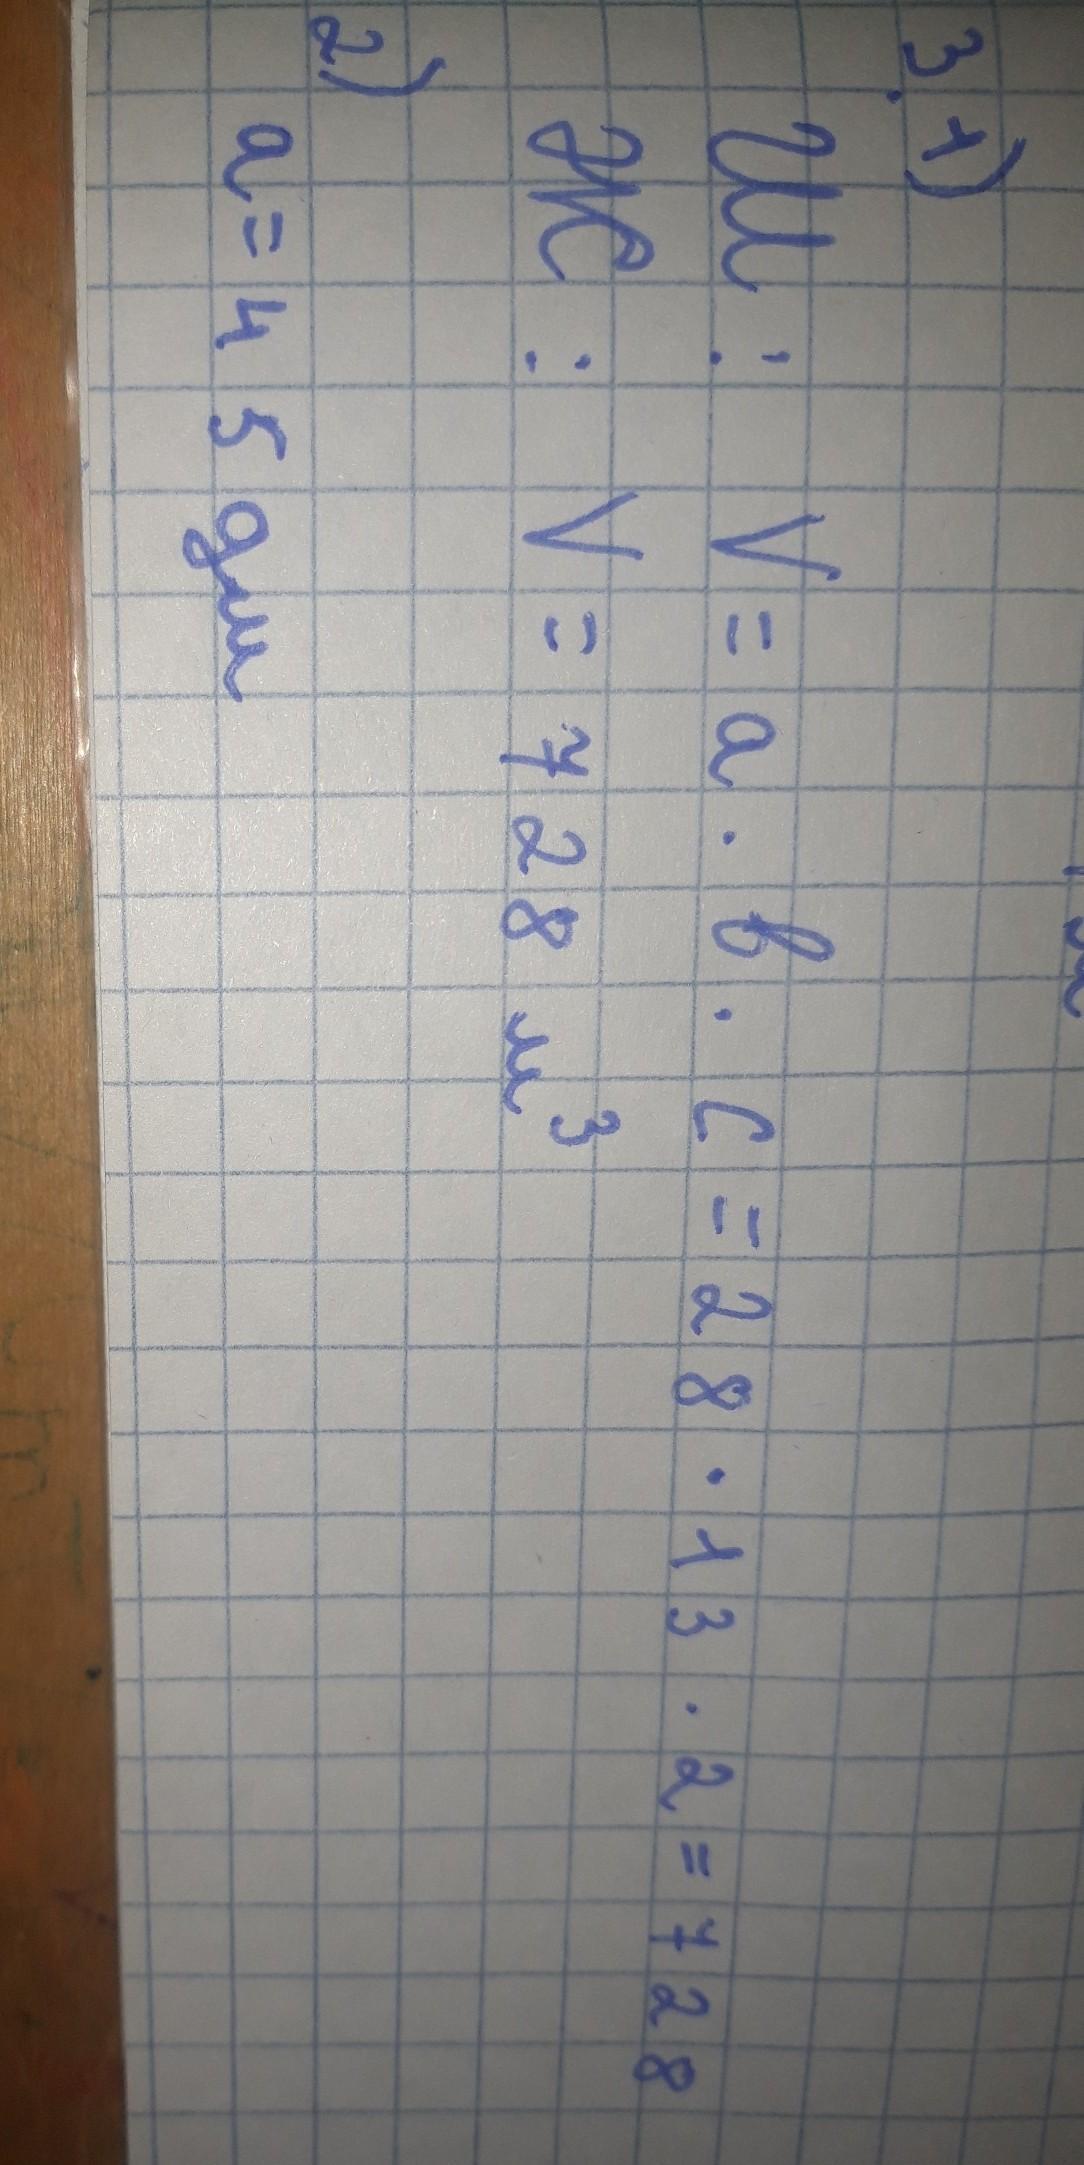 3. 1)
Ш : V = a . b . c = 28 . 13 . 2 = 728
Ж : V = 728 м³
2)
a = 45 дм